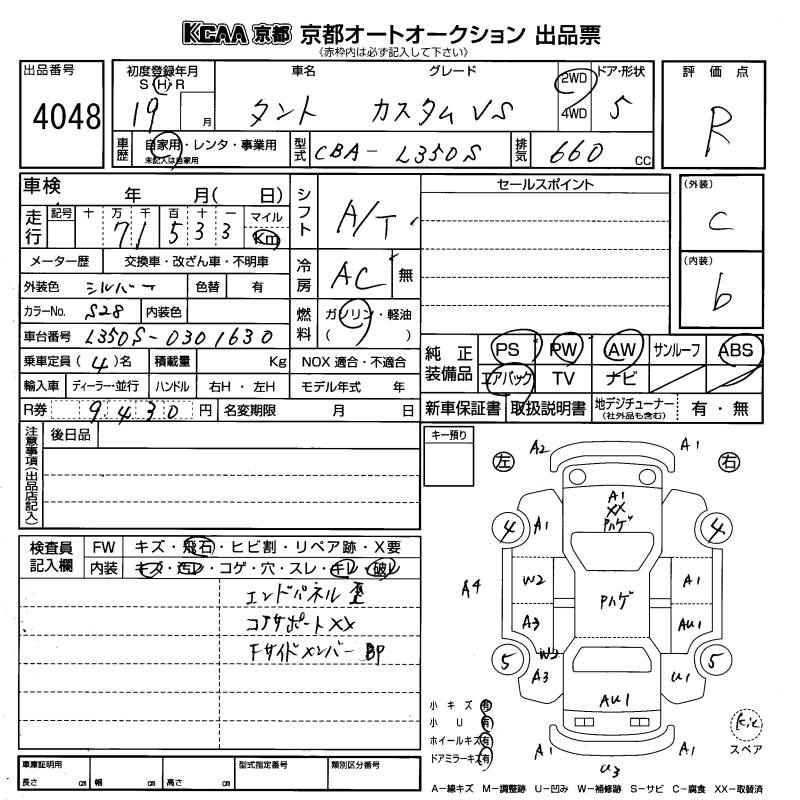 KCAA 京都 京都オートオークション 出品票
《赤枠内は必ず記入して下さい》
出品番号 4048
初度登録年月 S H R 19 月
車名 タント
グレード カスタム VS
2WD 4WD
ドア・形状 5
評価点 R
車歴 自家用・レンタ・事業用
未記入は自家用
型式 CBA-L350S
排気 660 CC
車検 年 月( 日)
走行 記号 十 万 千 百 十 一 マイル
71533 Km
メーター歴 交換車・改ざん車・不明車
外装色 シルバー 色替 有
カラーNo. S28 内装色
車台番号 L350S-0301630
乗車定員 (4)名 積載量 Kg
輸入車 ディーラー・並行 ハンドル 右H・左H
R券 9430 円 名変期限 月 日
シフト A/T
冷房 AC 無
燃料 ガソリン・軽油
( )
NOX 適合・不適合
モデル年式 年
セールスポイント
(外装) C
(内装) b
純正装備品 PS PW AW サンルーフ ABS
エアバック TV ナビ
新車保証書 取扱説明書 地デジチューナー (社外品も含む) 有・無
注意事項(出品店記入) 後日品
キー預り
検査員記入欄 FW キズ・飛石・ヒビ割・リペア跡・X要
内装 キズ・汚レ・コゲ・穴・スレ・キレ・破レ
エンドパネル 歪
コアサポート XX
Fサイドメンバー BP
左 右
A2 A1
A1
XX
Pハゲ
4 A1 4
W2 A1
A4
Pハゲ
A3 AU1
5 W2 5
A3 U1
AU1
A1 A1
U3
小キズ 有
小U 有
ホイールキズ 有
ドアミラーキズ 有
スペア
車庫証明用 長さ cm 幅 cm 高さ cm
型式指定番号
類別区分番号
A−線キズ M−調整跡 U−凹み W−補修跡 S−サビ C−腐食 XX−取替済